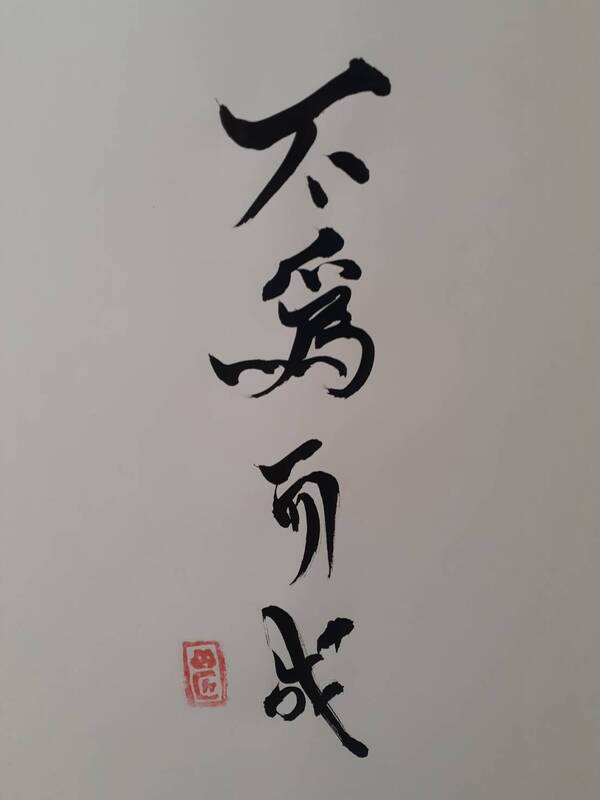 不爲而成